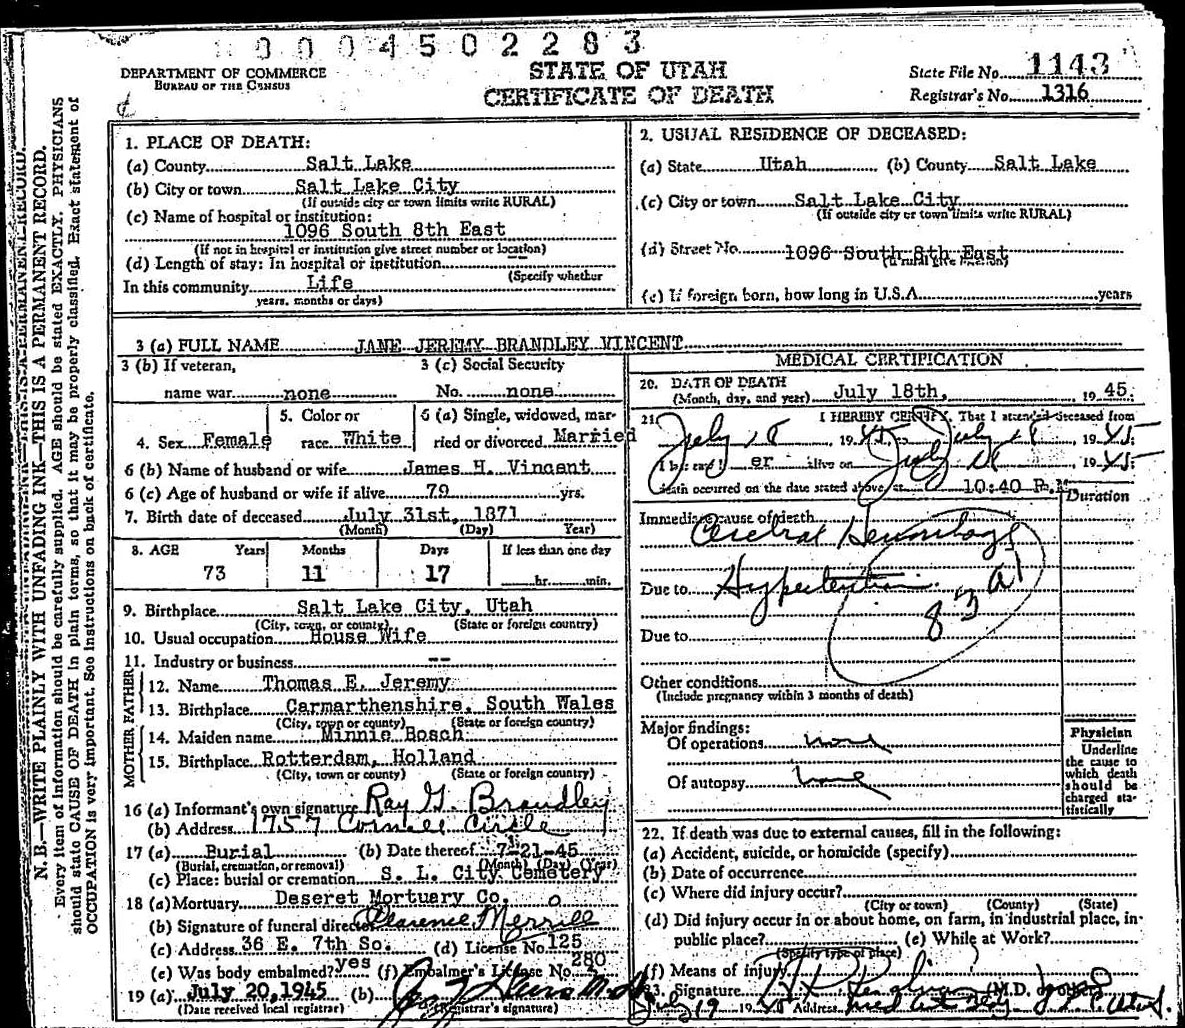 0004502283
DEPARTMENT OF COMMERCE
BUREAU OF THE CENSUS
STATE OF UTAH
CERTIFICATE OF DEATH
State File No. 1143
Registrar's No. 1316
N. B.—WRITE PLAINLY WITH UNFADING INK—THIS IS A PERMANENT RECORD.
Every item of information should be carefully supplied. AGE should be stated EXACTLY. PHYSICIANS
should state CAUSE OF DEATH in plain terms, so that it may be properly classified. Exact statement of
OCCUPATION is very important. See instructions on back of certificate.
1. PLACE OF DEATH:
(a) County Salt Lake
(b) City or town Salt Lake City
(If outside city or town limits write RURAL)
(c) Name of hospital or institution:
1096 South 8th East
(If not in hospital or institution give street number or location)
(d) Length of stay: In hospital or institution --
(Specify whether
In this community Life
years, months or days)
2. USUAL RESIDENCE OF DECEASED:
(a) State Utah (b) County Salt Lake
(c) City or town Salt Lake City
(If outside city or town limits write RURAL)
(d) Street No. 1096 South 8th East
(If rural give location)
(e) If foreign born, how long in U.S.A. years
3 (a) FULL NAME JANE JEREMY BRANDLEY VINCENT
3 (b) If veteran, 3 (c) Social Security
name war none No. none
5. Color or 6 (a) Single, widowed, mar-
4. Sex Female race White ried or divorced Married
6 (b) Name of husband or wife James H. Vincent
6 (c) Age of husband or wife if alive 79 yrs.
7. Birth date of deceased July 31st, 1871
(Month) (Day) Year)
8. AGE Years Months Days If less than one day
73 11 17 hr. min.
9. Birthplace Salt Lake City, Utah
(City, town, or county) (State or foreign country)
10. Usual occupation House Wife
11. Industry or business --
FATHER
12. Name Thomas E. Jeremy
13. Birthplace Carmarthenshire, South Wales
(City, town or county) (State or foreign country)
MOTHER
14. Maiden name Minnie Bosch
15. Birthplace Rotterdam, Holland
(City, town or county) (State or foreign country)
16 (a) Informant's own signature Ray G. Brandley
(b) Address 1757 Cornell Circle
17 (a) Burial (b) Date thereof 7-21-45
(Burial, cremation, or removal) (Month) (Day) (Year)
(c) Place: burial or cremation S. L. City Cemetery
18 (a) Mortuary Deseret Mortuary Co.
(b) Signature of funeral director Clarence Merrill
(c) Address 36 E. 7th So. (d) License No. 125
(e) Was body embalmed? yes (f) Embalmer's License No. 280
19 (a) July 20, 1945 (b)
(Date received local registrar) (Registrar's signature)
MEDICAL CERTIFICATION
20. DATE OF DEATH
(Month, day, and year) July 18th, 1945.
21. I HEREBY CERTIFY, That I attended deceased from
July 18, 1945 to July 18, 1945;
I last saw her alive on July 18, 1945
death occurred on the date stated above, at 10:40 P.M.
Duration
Immediate cause of death
Cerebral Hemorrhage
Due to Hypertention
83 a1
Due to
Other conditions
(Include pregnancy within 3 months of death)
Major findings:
Of operations none
Of autopsy none
Physician
Underline
the cause to
which death
should be
charged sta-
tistically
22. If death was due to external causes, fill in the following:
(a) Accident, suicide, or homicide (specify)
(b) Date of occurrence
(c) Where did injury occur?
(City or town) (County) (State)
(d) Did injury occur in or about home, on farm, in industrial place, in-
public place? (e) While at Work?
(Specify type of place)
(f) Means of injury
23. Signature (M.D. or other)
July 19 1945 Address